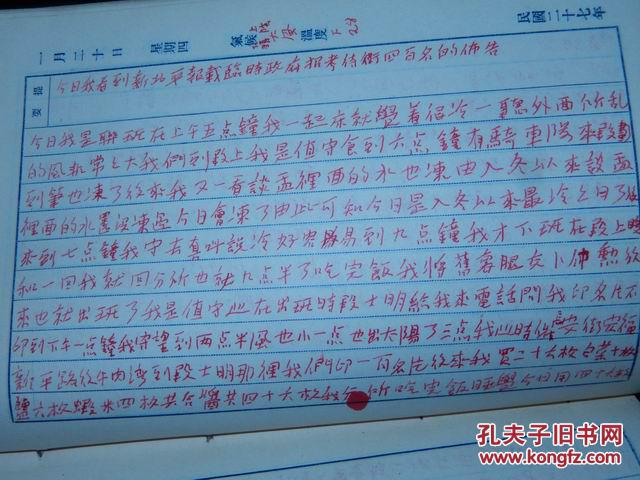 民國二十七年
一月二十日 星期四 氣候 上陰 大風 溫度 F 28
提要 今日我看到新北平報載臨時政府招考侍衛四百名的佈告
今日我是聯班在上午五点鐘我一起床就覺着很冷一聽外面所乱
的風非常之大我們到段上我是值守食到六点鐘有騎車隊來
到筆也凍了後來我又一看談盂裡面的水也凍由入冬以來談盂
裡面的水還沒凍過今日會凍了由此可知今日是入冬以來最冷之日了後
來到七点鐘我守去真叫說冷好容易到九点鐘我才下班在段上
和一回我就回分所也就九点半了吃完飯我將舊客服
來也就出班了我是值守巡在出班時段士明給我來電話問我印名片不
印到下午一点鐘我守望到兩点半風也小一点也出太陽了三点我巡時候 安街宏
新平路後午內 到段士明那裡我們印一百名片後來我買二十六枚白菜十枚
六枚蝦米四枚共合醬共四十六枚我 所吃完飯睡覺今日用四十六枚
孔夫子旧书网
www.kongfz.com